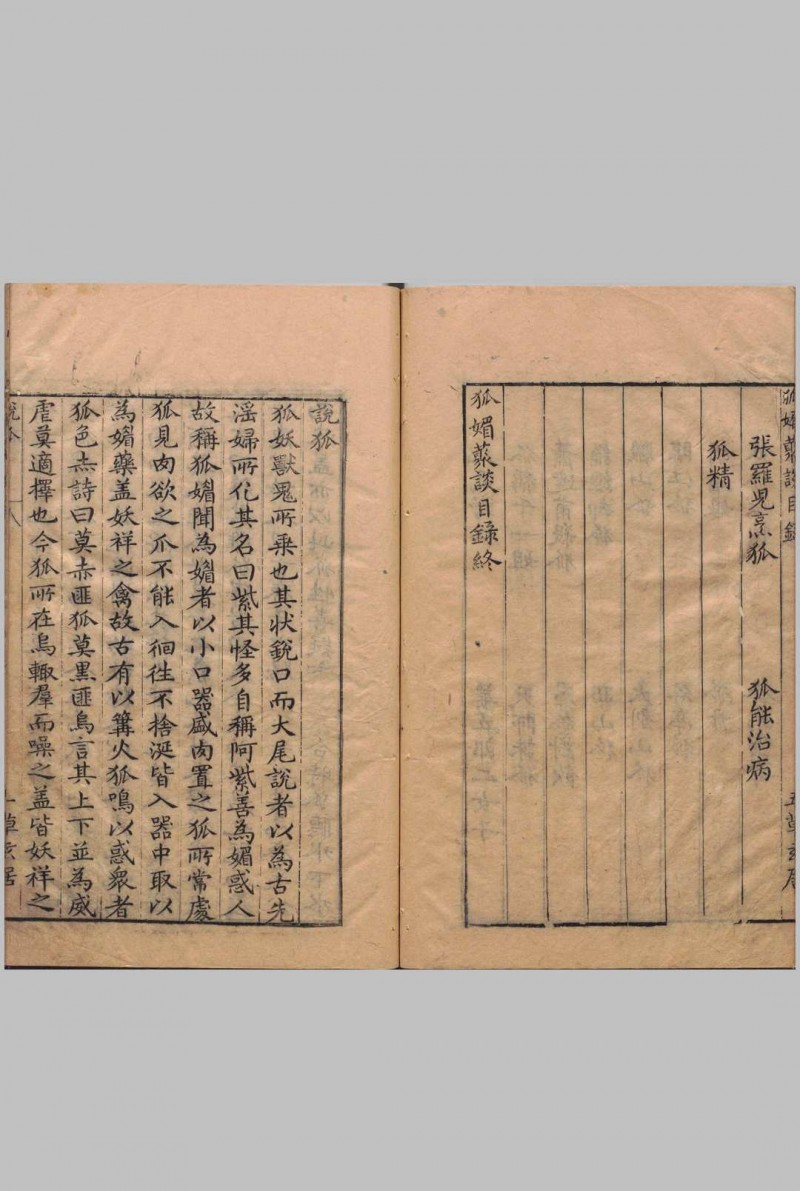 狐媚藂談目錄
五 草玄居
張羅兒烹狐　狐能治病
狐精
狐媚藂談目錄終
說狐
狐妖獸鬼所乗也其狀銳口而大尾說者以為古先
淫婦所化其名曰紫其怪多自稱阿紫善為媚惑人
故稱狐媚聞為媚者以小口器盛肉置之狐所常處
狐見肉欲之爪不能入徊徃不捨涎皆入器中取以
為媚藥盖妖祥之禽故古有以篝火狐鳴以惑衆者
狐色赤詩曰莫赤匪狐莫黑匪烏言其上下並為威
虐莫適擇也今狐所在烏輙羣而噪之盖皆妖祥之
說狐
一 草玄居